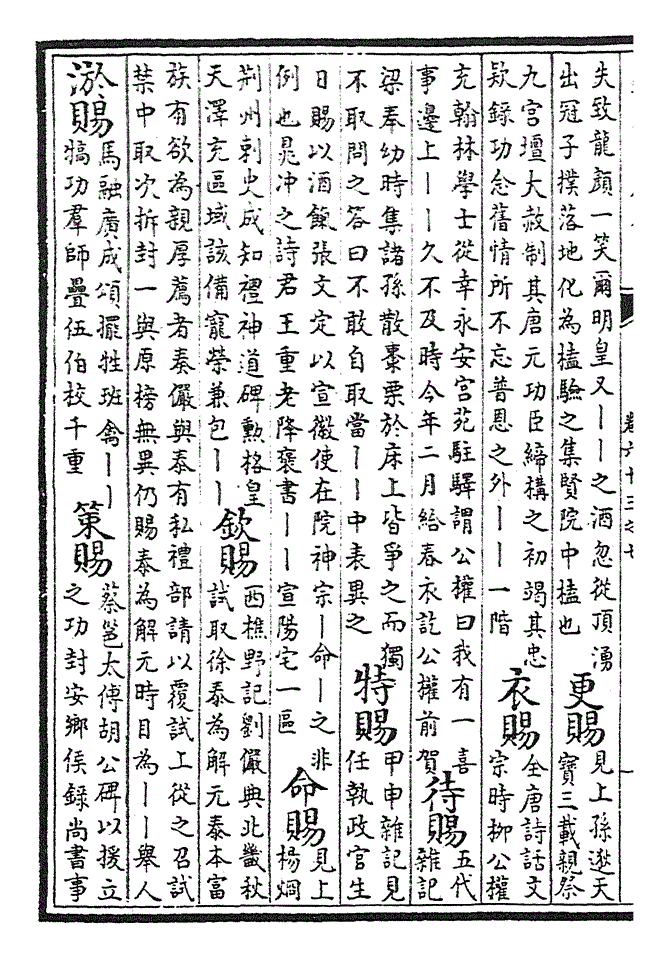 失致龍顏一笑爾明皇又丨丨之酒忽從頂湧
出冠子撲落地化為榼驗之集賢院中榼也
更賜
見上孫逖天
寶三載親祭
九宮壇大赦制其唐元功臣締構之初竭其忠
欵錄功念舊情所不忘普恩之外丨丨一階
衣賜
全唐詩話文
宗時柳公權
充翰林學士從幸永安宮苑駐驛謂公權曰我有一喜
事邊上丨丨久不及時今年二月給春衣訖公權前賀
待賜
五代
雜記
梁奉幼時集諸孫散棗栗於床上皆爭之而獨
不取問之答曰不敢自取當丨丨中表異之
特賜
甲申雜記見
任執政官生
日賜以酒餼張文定以宣徽使在院神宗丨命丨之非
例也晁冲之詩君王重老降褒書丨丨宣陽宅一區
命賜
見上
楊烱
荆州刺史成知禮神道碑勲格皇
天澤充區域該備寵榮兼包丨丨
欽賜
西樵野記劉儼典北畿秋
試取徐泰為解元泰本富
族有欲為親厚薦者奏儼與泰有私禮部請以覆試上從之召試
禁中取次拆封一與原榜無異仍賜泰為解元時目為丨丨舉人
淤賜
馬融廣成頌擺牲班禽丨丨
犒功羣師疊伍伯校千重
策賜
蔡邕太傅胡公碑以援立
之功封安鄉侯錄尚書事